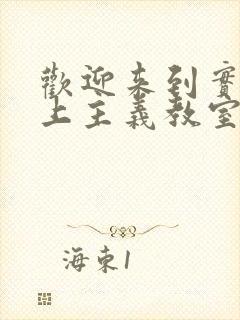 歡迎来到實
上主義教室
海東1